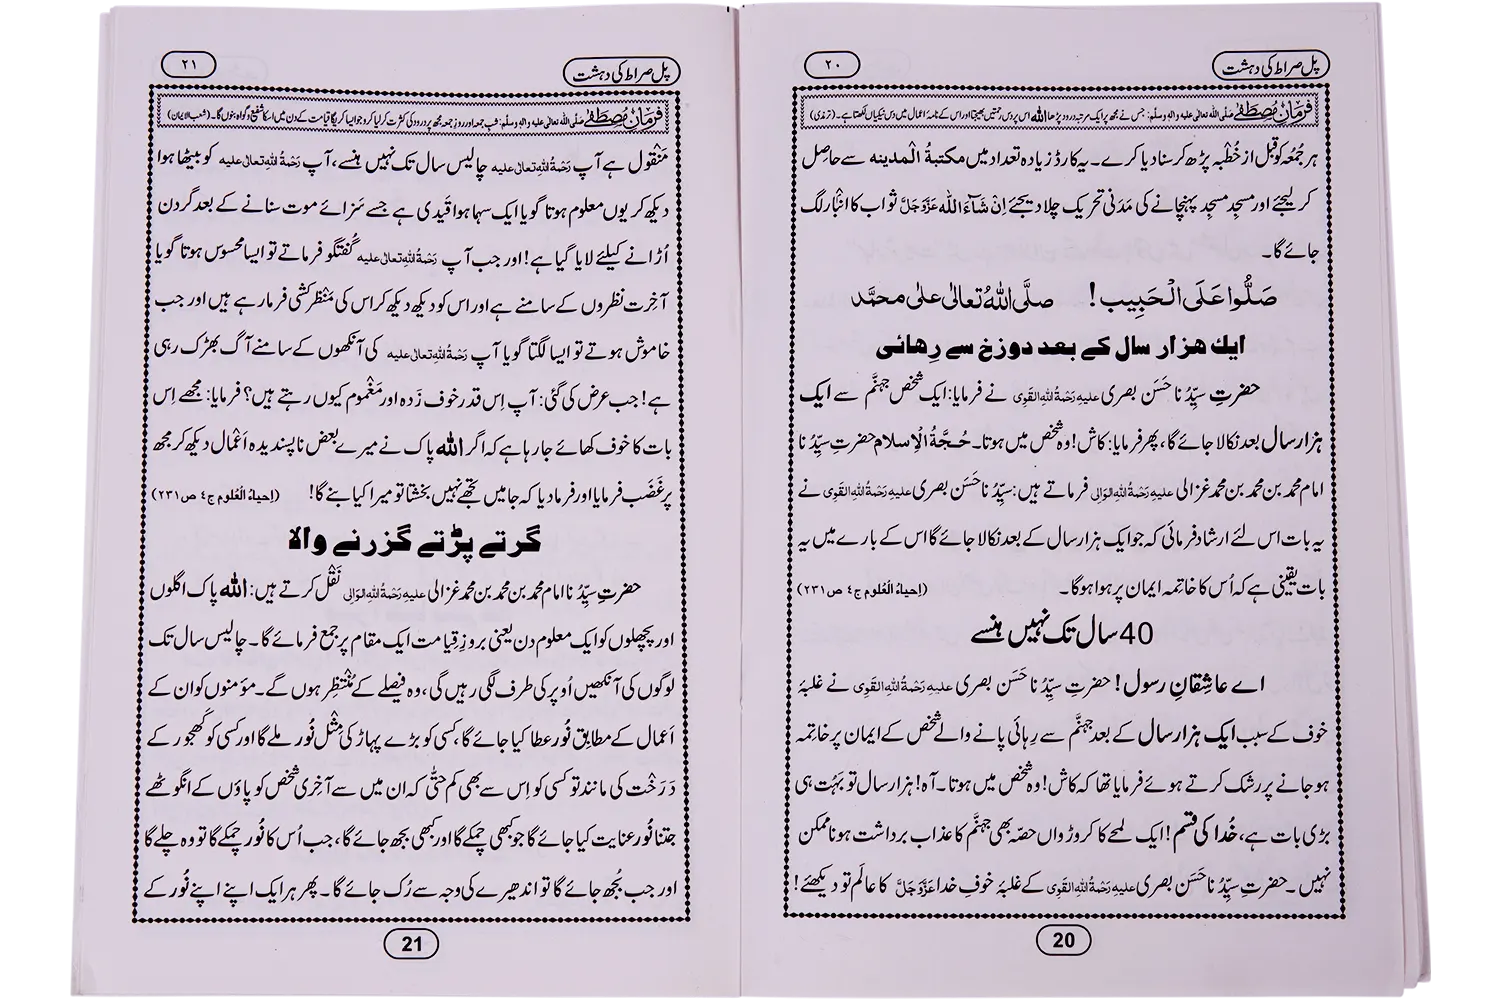 پل صراط کی دہشت
۲۰
فرمانِ مصطفٰے صلی اللہ تعالیٰ علیہ واٰلہٖ وسلم: جس نے مجھ پر ایک مرتبہ درود پڑھا اللہ اس پر دس رحمتیں بھیجتا اور اس کے نامۂ اعمال میں دس نیکیاں لکھتا ہے۔ (ترمذی)
ہر جُمُعہ کو قبل از خُطْبہ پڑھ کر سنا دیا کرے۔ یہ کارڈ زیادہ تعداد میں مکتبۃُ المدینہ سے حاصِل
کر لیجئے اور مسجِد مسجِد پہنچانے کی مَدَنی تحریک چلا دیجئے اِنْ شَآءَ اللہ عَزَّوَجَلَّ ثواب کا انْبار لگ
جائے گا۔
صَلُّوا عَلَی الْحَبِیب! صلَّی اللہُ تعالٰی علٰی محمَّد
ایک ہزار سال کے بعد دوزخ سے رِہائی
حضرتِ سیِّدُنا حَسَن بصری علیہ رَحْمَۃُ اللہِ القَوِی نے فرمایا: ایک شخص جہنَّم سے ایک
ہزار سال بعد نکالا جائے گا، پھر فرمایا: کاش! وہ شخص میں ہوتا۔ حُجَّۃُ الْاِسلام حضرتِ سیِّدُنا
امام محمد بن محمد بن محمد غزالی علیہ رَحْمَۃُ اللہِ الوَالِی فرماتے ہیں: سیِّدُنا حَسَن بصری علیہ رَحْمَۃُ اللہِ القَوِی نے
یہ بات اس لئے ارشاد فرمائی کہ جو ایک ہزار سال کے بعد نکالا جائے گا اس کے بارے میں یہ
بات یقینی ہے کہ اُس کا خاتِمہ ایمان پر ہوا ہوگا۔ (اِحیاءُ الْعُلوم ج٤ ص۲۳۱)
40 سال تک نہیں ہنسے
اے عاشِقانِ رسول! حضرتِ سیِّدُنا حَسَن بصری علیہ رَحْمَۃُ اللہِ القَوِی نے غلبۂ
خوف کے سبب ایک ہزار سال کے بعد جہنَّم سے رِہائی پانے والے شخص کے ایمان پر خاتِمہ
ہو جانے پر رشک کرتے ہوئے فرمایا تھا کہ کاش! وہ شخص میں ہوتا۔ آہ! ہزار سال تو بہُت ہی
بڑی بات ہے، خُدا کی قسم! ایک لمحے کا کروڑواں حصّہ بھی جہنَّم کا عذاب برداشت ہونا ممکن
نہیں۔ حضرتِ سیِّدُنا حَسَن بصری علیہ رَحْمَۃُ اللہِ القَوِی کے غلبۂ خوفِ خدا عَزَّوَجَلَّ کا عالَم تو دیکھئے!
20
پل صراط کی دہشت
۲۱
فرمانِ مصطفٰے صلی اللہ تعالیٰ علیہ واٰلہٖ وسلم: شبِ جمعہ اور روزِ جمعہ مجھ پر درود کی کثرت کر لیا کرو جو ایسا کریگا قیامت کے دن میں اسکا شفیع و گواہ بنوں گا۔ (شعب الایمان)
مَنْقول ہے آپ رَحْمَۃُ اللہِ تعالٰی علیہ چالیس سال تک نہیں ہنسے، آپ رَحْمَۃُ اللہِ تعالٰی علیہ کو بیٹھا ہوا
دیکھ کر یوں معلوم ہوتا گویا ایک سہما ہوا قیدی ہے جسے سَزائے موت سنانے کے بعد گردن
اُڑانے کیلئے لایا گیا ہے! اور جب آپ رَحْمَۃُ اللہِ تعالٰی علیہ گُفتگو فرماتے تو ایسا محسوس ہوتا گویا
آخِرت نظروں کے سامنے ہے اور اس کو دیکھ دیکھ کر اس کی مَنْظَر کشی فرما رہے ہیں اور جب
خاموش ہوتے تو ایسا لگتا گویا آپ رَحْمَۃُ اللہِ تعالٰی علیہ کی آنکھوں کے سامنے آگ بھڑک رہی
ہے! جب عرض کی گئی: آپ اِس قدر خوف زَدہ اور مَغْموم کیوں رہتے ہیں؟ فرمایا: مجھے اِس
بات کا خوف کھائے جا رہا ہے کہ اگر اللہ پاک نے میرے بعض ناپسندیدہ اَعْمال دیکھ کر مجھ
پر غَضَب فرمایا اور فرما دیا کہ جا میں تجھے نہیں بخشتا تو میرا کیا بنے گا! (اِحیاءُ الْعُلوم ج٤ ص۲۳۱)
گرتے پڑتے گزرنے والا
حضرتِ سیِّدُنا امام محمد بن محمد بن محمد غزالی علیہ رَحْمَۃُ اللہِ الوَالِی نَقْل کرتے ہیں: اللہ پاک اگلوں
اور پچھلوں کو ایک معلوم دن یعنی بروزِ قِیامت ایک مقام پر جمع فرمائے گا۔ چالیس سال تک
لوگوں کی آنکھیں اُوپر کی طرف لگی رہیں گی، وہ فیصلے کے مُنْتَظِر ہوں گے۔ مؤمنوں کو ان کے
اَعمال کے مطابق نُور عطا کیا جائے گا، کسی کو بڑے پہاڑ کی مِثْل نُور ملے گا اور کسی کو کھجور کے
دَرَخْت کی مانند تو کسی کو اِس سے بھی کم حتّٰی کہ ان میں سے آخِری شخص کو پاؤں کے انگوٹھے
جتنا نُور عنایت کیا جائے گا جو کبھی چمکے گا اور کبھی بجھ جائے گا، جب اُس کا نُور چمکے گا تو وہ چلے گا
اور جب بُجھ جائے گا تو اندھیرے کی وجہ سے رُک جائے گا۔ پھر ہر ایک اپنے اپنے نُور کے
21